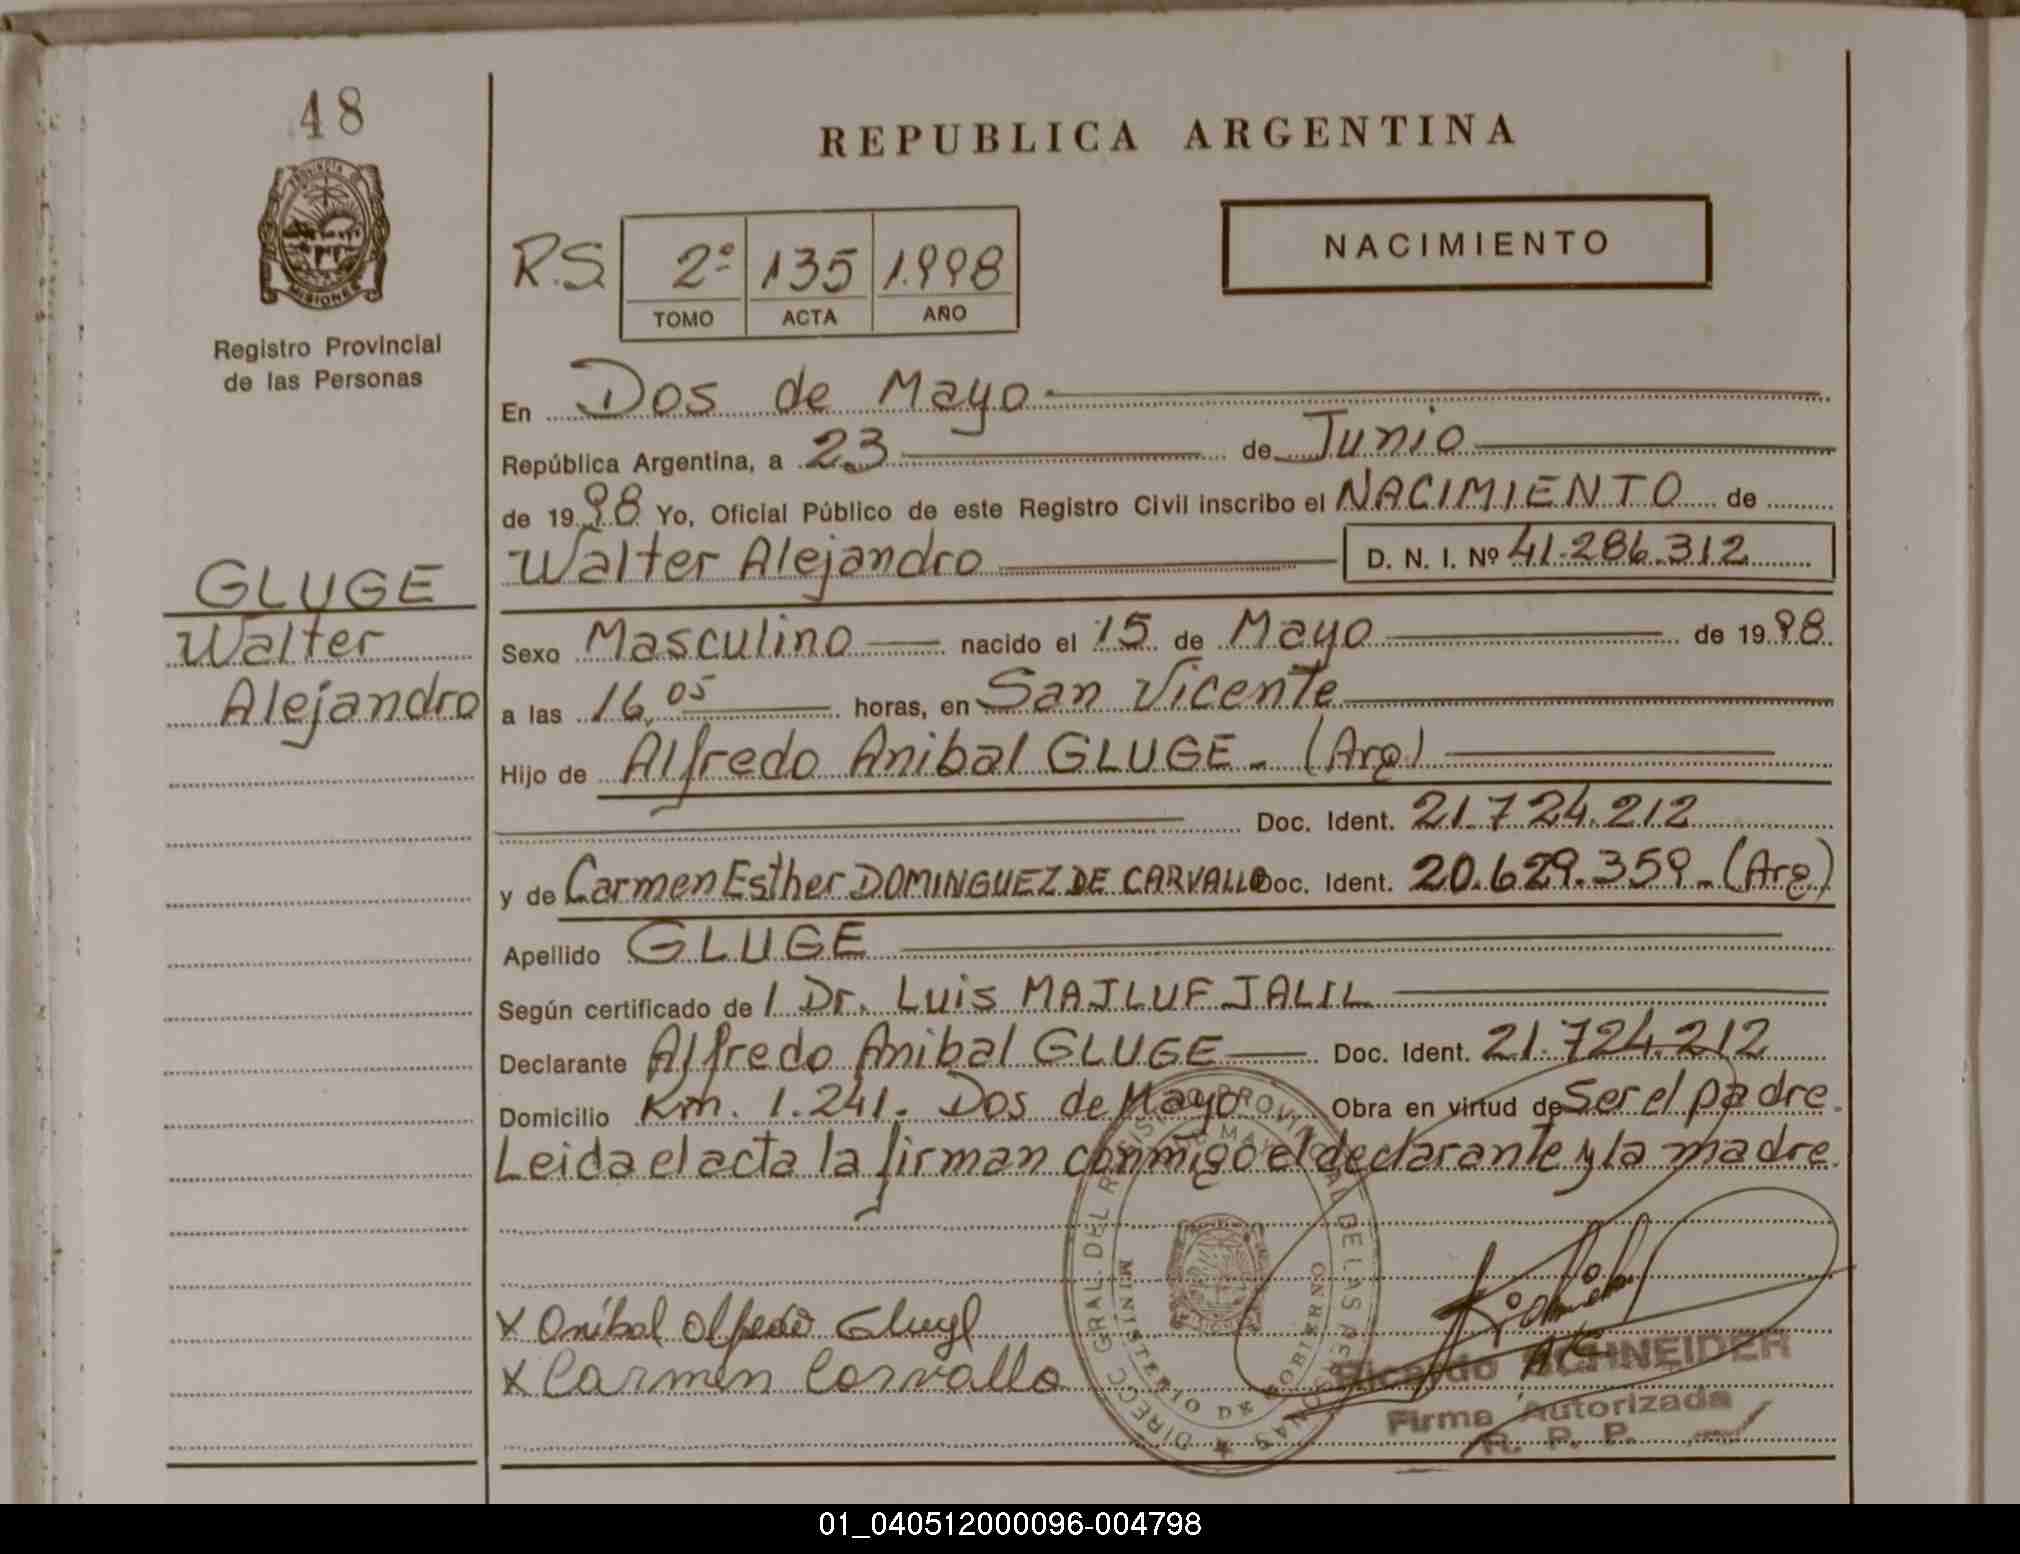 48
REPUBLICA ARGENTINA
PROVINCIA DE
MISIONES
Registro Provincial
de las Personas
NACIMIENTO
R.S. 2º 135 1.998
TOMO ACTA AÑO
En Dos de Mayo
República Argentina, a 23 de Junio
de 1998 Yo, Oficial Público de este Registro Civil inscribo el NACIMIENTO de
Walter Alejandro D. N. I. Nº 41.286.312
GLUGE
Walter
Alejandro
Sexo Masculino nacido el 15 de Mayo de 1998
a las 16,05 horas, en San Vicente
Hijo de Alfredo Anibal GLUGE - (Arg)
Doc. Ident. 21.724.212
y de Carmen Esther DOMINGUEZ DE CARVALLO Doc. Ident. 20.629.359 - (Arg)
Apellido GLUGE
Según certificado de / Dr. Luis MAJLUF JALIL
Declarante Alfredo Anibal GLUGE Doc. Ident. 21.724.212
Domicilio Km. 1.241. Dos de Mayo Obra en virtud de Ser el padre.
Leida el acta la firman conmigo el declarante y la madre.
DIRECC GRAL. DEL REGISTRO PROVINCIAL DE LAS PERSONAS
MINISTERIO DE GOBIERNO
x Anibal Alfredo Gluge
x Carmen Carvallo
Ricardo SCHNEIDER
Firma Autorizada
R. P. P.
01_040512000096-004798